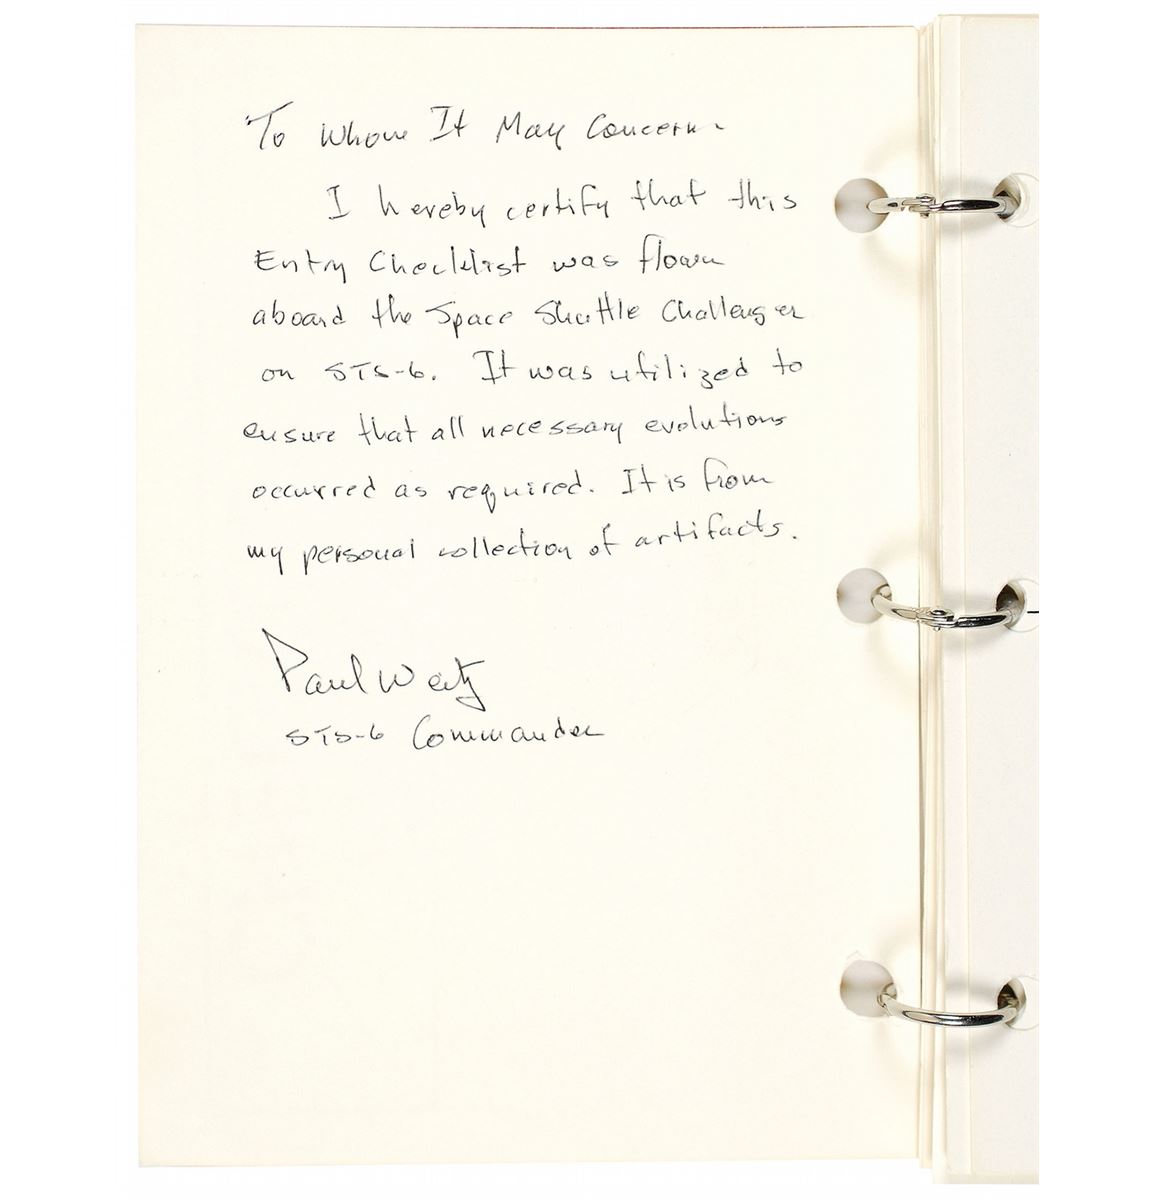 To Whom It May Concern
I hereby certify that this
Entry Checklist was flown
aboard the Space Shuttle Challenger
on STS-6. It was utilized to
ensure that all necessary evolutions
occurred as required. It is from
my personal collection of artifacts.
Paul Weitz
STS-6 Commander